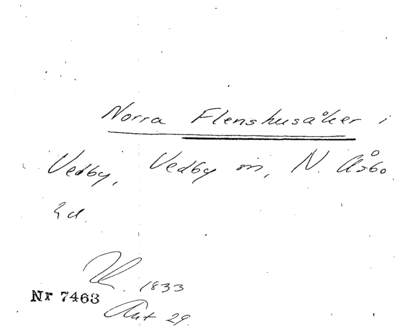 Norra Flenshusåker i
Vedby, Vedby sn, N. Åsbo
hd.
1833
Nr 7463
Akt 29